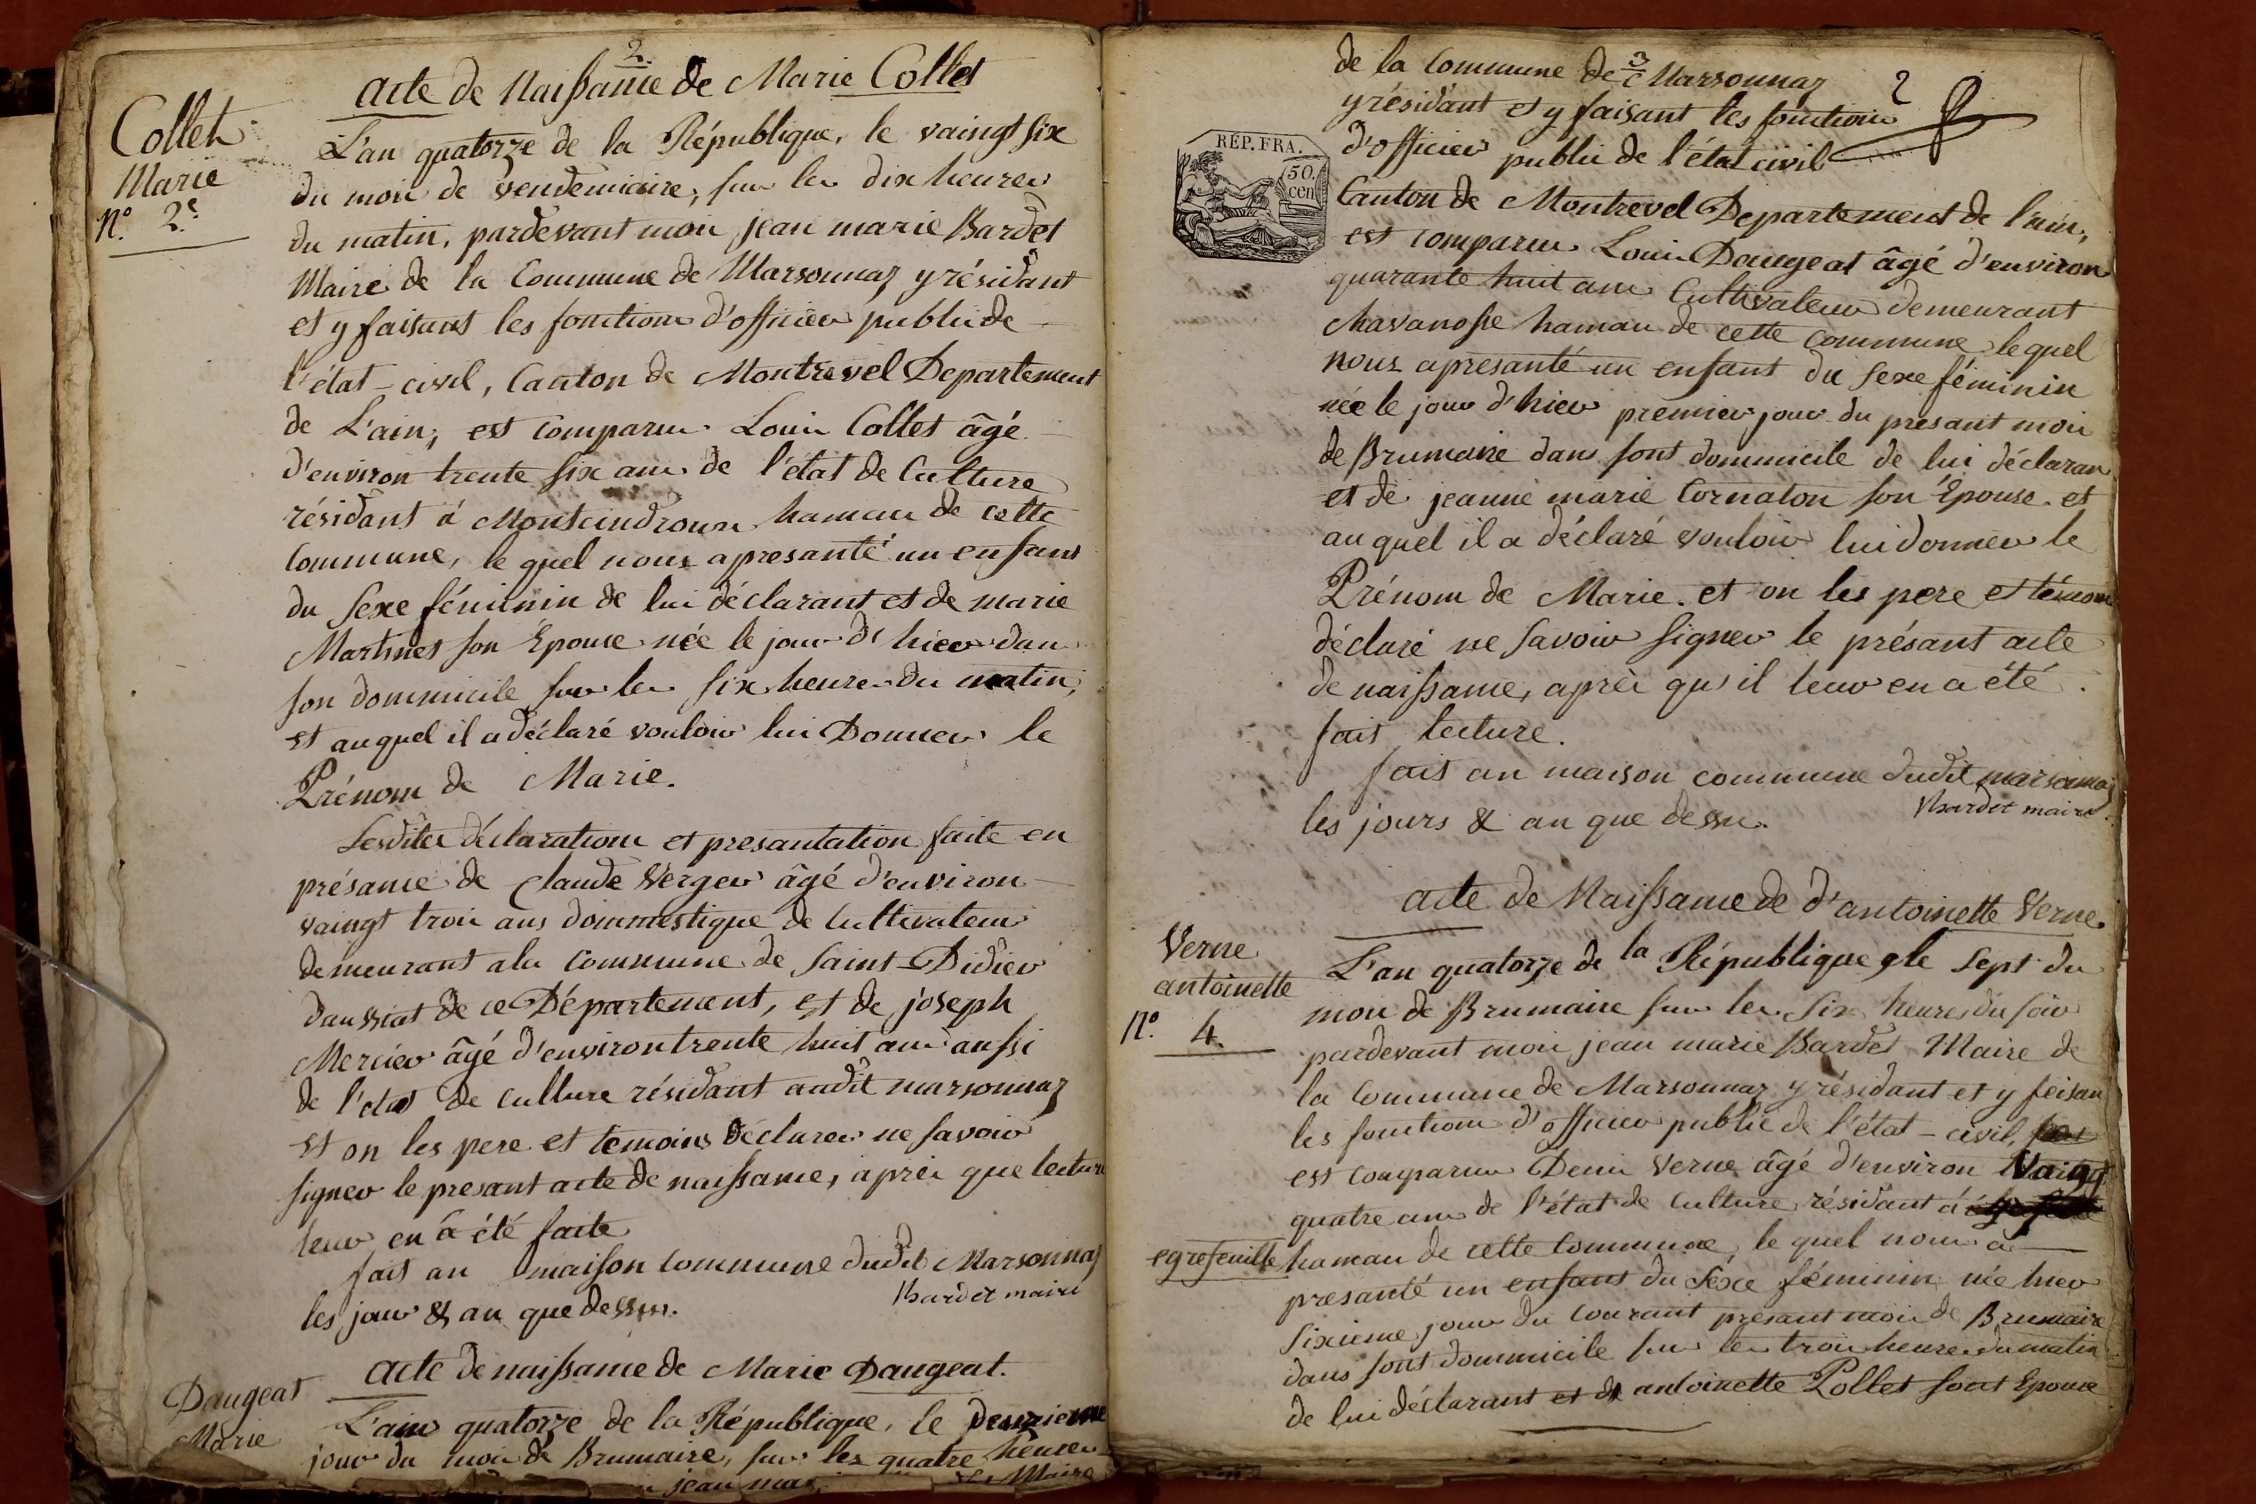 2.
Acte de Naissance de Marie Collet
Collet
Marie
N.º 2.e
L'an quatorze de la République, le vaingt six
du mois de vendemiaire, sur les dix heures
du matin, pardevant moi jean marie Bardet
Maire de la Commune de Marsonnaz y résidant
et y faisant les fonctions d'officier public de
l'état-civil, Canton de Montrevel Departement
de L'ain, est comparu Louis Collet âgé
d'environ trente six ans de l'état de Culture
résidant á hameau de cette
Commune, le quel nous apresanté un enfant
du Sexe féminin de lui déclarant et de marie
Martinet son Epouse née le jour d'hier dans
son dommicile sur les six heures du matin,
et auquel il a déclaré vouloir lui Donner le
Prénom de Marie.
Lesdites déclarations et presantation faite en
présance de Claude Verger âgé d'environ
vaingt trois ans dommestique de Cultivateur
demeurant a la Commune de Saint-Didier
daussiat de ce Département, et de joseph
Mercier âgé d'environ trente huit ans aussi
de l'état de culture résidant audit marsonnaz
et on les pere et temoins déclarer ne savoir
signer le presant acte de naissance, après que lecture
leur en á été faite
fait an maison commune dudit Marsonnaz
les jour & an que dessus. Bardet maire
Acte de naissance de Marie Daugeat.
Daugeat
Marie
L'an quatorze de la République, le deuzieme
jour du mois de Brumaire, sur les quatre heures
jean mar Maire
3
de la Commune de Marsonnaz 2
y résidant et y faisant les fonctions
d'officier public de l'état civil
RÉP. FRA.
50.
cen
Canton de Montrevel Departement de l'ain,
est comparu Louis Daugeat âgé d'environ
quarante huit ans Cultivateur demeurant
Chavanosse hamau de cette commune lequel
nous apresanté un enfant du Sexe féminin
née le jour d'hier premier jour du presant mois
de Brumaire dans sont dommicile de lui déclaran
et de jeanne marie Cornaton son Épouse et
auquel il a déclaré vouloir lui donner le
Prénom de Marie. et on les pere et témoin
déclaré ne savoir signer le présant acte
de naissance, après qu'il leur en a été
fait lecture.
fait an maison commune dudit marsonnaz
les jours & an que dessu. Bardet maire
acte de Naissance de d'antoinette Verne.
Verne
antoinette
N.º 4.
L'an quatorze de la République, le Sept du
mois de Brumaire sur les Six heures du soir
pardevant moi jean marie Bardet Maire de
la Commune de Marsonnaz y résidant et y feisan
les fonctions d'officier public de l'état-civil,
est comparu Denis Verne âgé d'environ Vaingt
quatre ans de l'état de Culture résidant á
egrefeuille hamau de cette Commune, le quel nous a
presanté un enfant du Séxe féminin née hier
Sixieme jour du Courant présant mois de Brumaire
dans sont dommicile sur les trois heures du matin
de lui déclarant et de antoinette Pollet sont Epouse